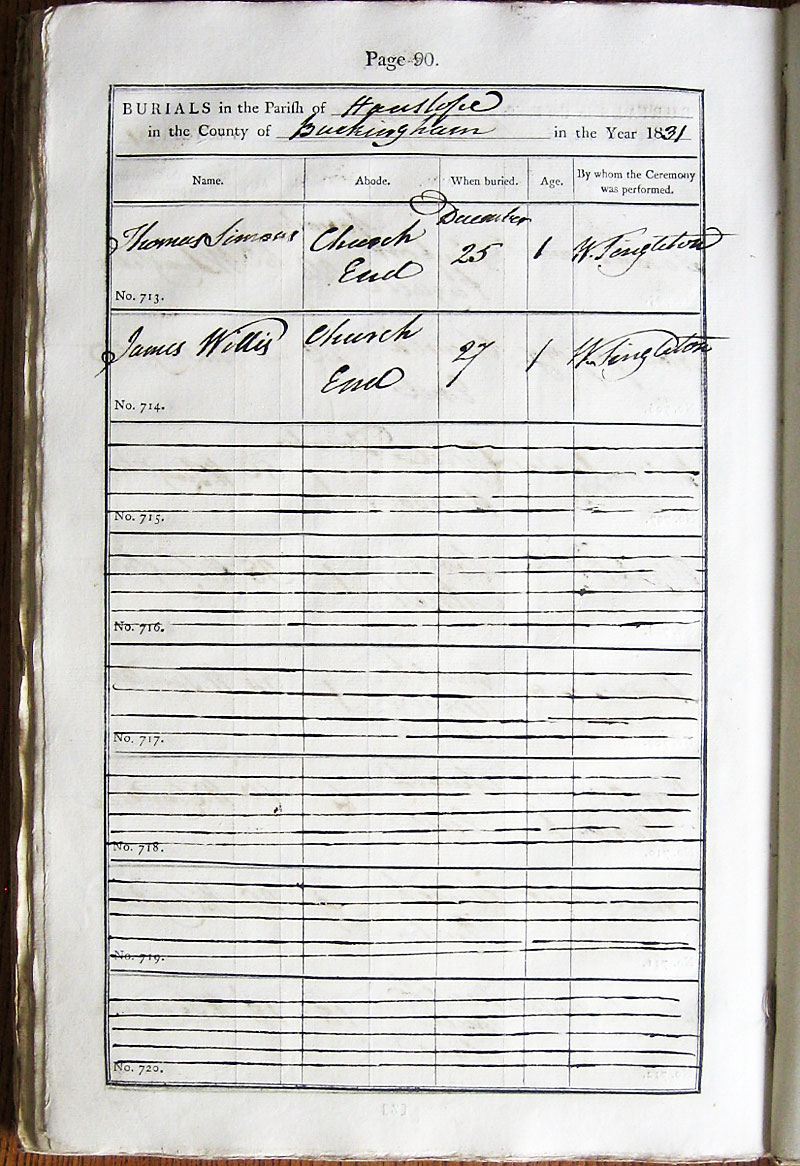 Page 90.
BURIALS in the Parish of Hanslope
in the County of Buckingham in the Year 1831
Name. Abode. When buried. Age. By whom the Ceremony was performed.
December
Thomas Simons Church End 25 1 W. Singleton
No. 713.
James Willis Church End 27 1 W. Singleton
No. 714.
No. 715.
No. 716.
No. 717.
No. 718.
No. 719.
No. 720.